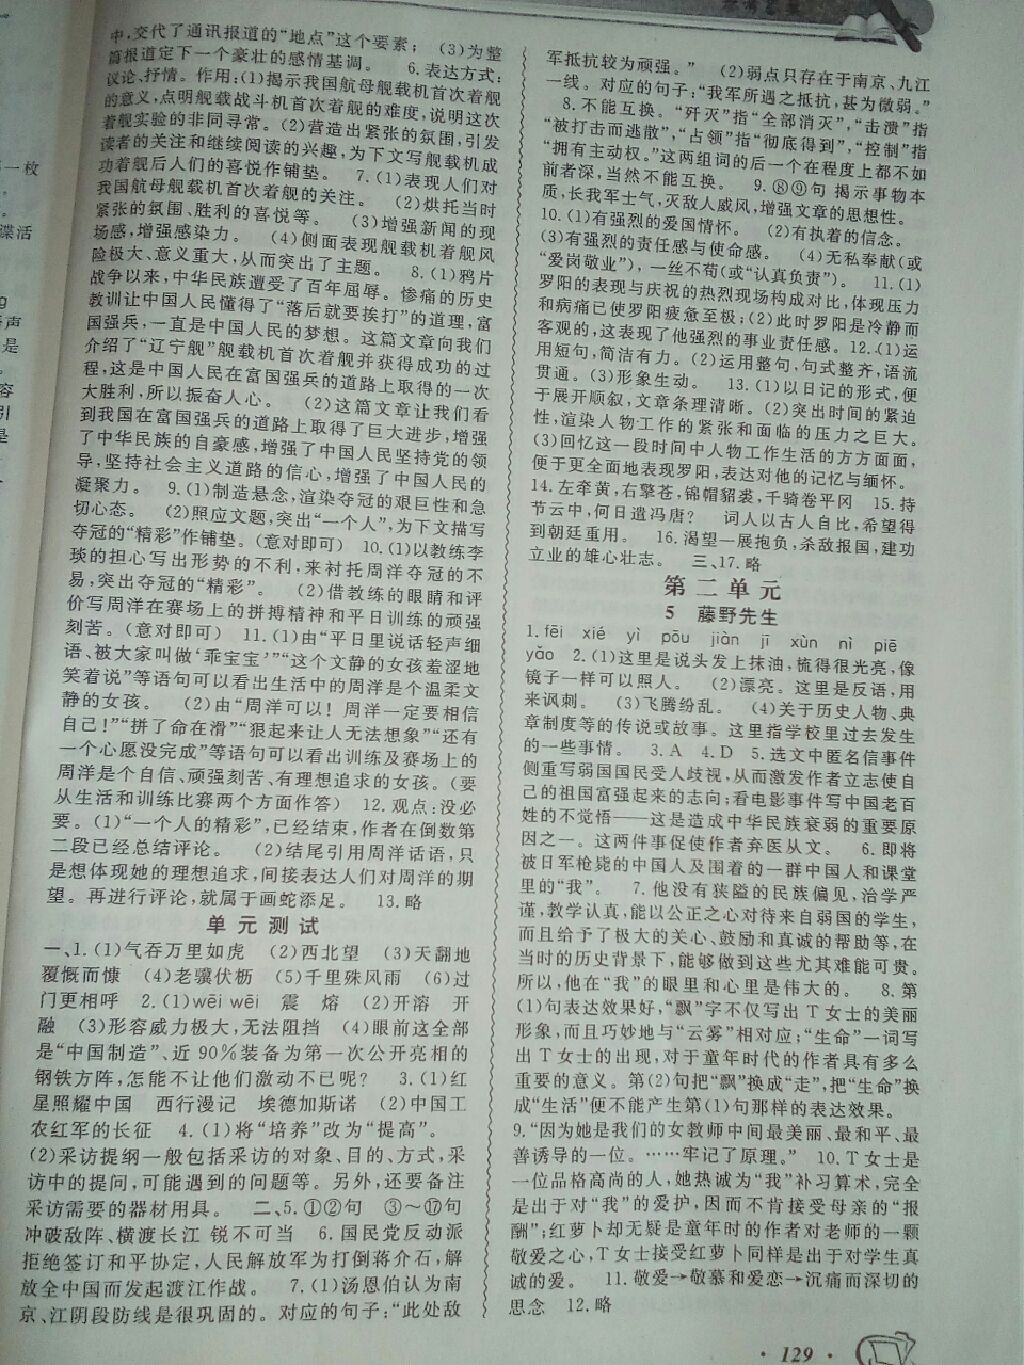 中,交代了通讯报道的“地点”这个要素; (3)为整
篇报道定下一个豪壮的感情基调。 6.表达方式:
议论、抒情。作用:(1)揭示我国航母舰载机首次着舰
的意义,点明舰载战斗机首次着舰的难度,说明这次
着舰实验的非同寻常。(2)营造出紧张的氛围,引发
读者的关注和继续阅读的兴趣,为下文写舰载机成
功着舰后人们的喜悦作铺垫。 7.(1)表现人们对
我国航母舰载机首次着舰的关注。 (2)烘托当时
紧张的氛围、胜利的喜悦等。 (3)增强新闻的现
场感,增强感染力。 (4)侧面表现舰载机着舰风
险极大、意义重大,从而突出了主题。 8.(1)鸦片
战争以来,中华民族遭受了百年屈辱。惨痛的历史
教训让中国人民懂得了“落后就要挨打”的道理,富
国强兵,一直是中国人民的梦想。这篇文章向我们
介绍了“辽宁舰”舰载机首次着舰并获得成功的过
程,这是中国人民在富国强兵的道路上取得的一次
大胜利,所以振奋人心。 (2)这篇文章让我们看
到我国在富国强兵的道路上取得了巨大进步,增强
了中华民族的自豪感,增强了中国人民坚持党的领
导,坚持社会主义道路的信心,增强了中国人民的
凝聚力。 9.(1)制造悬念,渲染夺冠的艰巨性和急
切心态。 (2)照应文题,突出“一个人”,为下文描写
夺冠的“精彩”作铺垫。(意对即可) 10.(1)以教练李
琰的担心写出形势的不利,来衬托周洋夺冠的不
易,突出夺冠的“精彩”。 (2)借教练的眼睛和评
价写周洋在赛场上的拼搏精神和平日训练的顽强
刻苦。(意对即可) 11.(1)由“平日里说话轻声细
语、被大家叫做‘乖宝宝’”“这个文静的女孩羞涩地
笑着说”等语句可以看出生活中的周洋是个温柔文
静的女孩。 (2)由“周洋可以!周洋一定要相信
自己!”“拼了命在滑”“狠起来让人无法想象”“还有
一个心愿没完成”等语句可以看出训练及赛场上的
周洋是个自信、顽强刻苦、有理想追求的女孩。(要
从生活和训练比赛两个方面作答) 12.观点:没必
要。(1)“一个人的精彩”,已经结束,作者在倒数第
二段已经总结评论。 (2)结尾引用周洋话语,只
是想体现她的理想追求,间接表达人们对周洋的期
望。再进行评论,就属于画蛇添足。 13.略
单元测试
一、1.(1)气吞万里如虎 (2)西北望 (3)天翻地
覆慨而慷 (4)老骥伏枥 (5)千里殊风雨 (6)过
门更相呼 2.(1)wēi wēi 震 熔 (2)开溶 开
融 (3)形容威力极大,无法阻挡 (4)眼前这全部
是“中国制造”、近90%装备为第一次公开亮相的
钢铁方阵,怎能不让他们激动不已呢? 3.(1)红
星照耀中国 西行漫记 埃德加斯诺 (2)中国工
农红军的长征 4.(1)将“培养”改为“提高”。
(2)采访提纲一般包括采访的对象、目的、方式,采
访中的提问,可能遇到的问题等。另外,还要备注
采访需要的器材用具。 二、5.①②句 ③～⑰句
冲破敌阵、横渡长江 锐不可当 6.国民党反动派
拒绝签订和平协定,人民解放军为打倒蒋介石,解
放全中国而发起渡江作战。 7.(1)汤恩伯认为南
京、江阴段防线是很巩固的。对应的句子:“此处敌
军抵抗较为顽强。” (2)弱点只存在于南京、九江
一线。对应的句子:“我军所遇之抵抗,甚为微弱。”
8.不能互换。“歼灭”指“全部消灭”,“击溃”指
“被打击而逃散”,“占领”指“彻底得到”,“控制”指
“拥有主动权。”这两组词的后一个在程度上都不如
前者深,当然不能互换。 9.⑧⑨句 揭示事物本
质,长我军士气,灭敌人威风,增强文章的思想性。
10.(1)有强烈的爱国情怀。 (2)有执着的信念。
(3)有强烈的责任感与使命感。 (4)无私奉献(或
“爱岗敬业”),一丝不苟(或“认真负责”)。 11.(1)
罗阳的表现与庆祝的热烈现场构成对比,体现压力
和病痛已使罗阳疲惫至极;(2)此时罗阳是冷静而
客观的,这表现了他强烈的事业责任感。12.(1)运
用短句,简洁有力。(2)运用整句,句式整齐,语流
贯通。(3)形象生动。 13.(1)以日记的形式,便
于展开顺叙,文章条理清晰。(2)突出时间的紧迫
性,渲染人物工作的紧张和面临的压力之巨大。
(3)回忆这一段时间中人物工作生活的方方面面,
便于更全面地表现罗阳,表达对他的记忆与缅怀。
14.左牵黄,右擎苍,锦帽貂裘,千骑卷平冈 15.持
节云中,何日遣冯唐? 词人以古人自比,希望得
到朝廷重用。 16.渴望一展抱负,杀敌报国,建功
立业的雄心壮志。 三、17.略
第二单元
5 藤野先生
1.fēi xié yì pōu jiàn jī xùn nì piē
yǎo 2.(1)这里是说头发上抹油,梳得很光亮,像
镜子一样可以照人。 (2)漂亮。这里是反语,用
来讽刺。 (3)飞腾纷乱。 (4)关于历史人物、典
章制度等的传说或故事。这里指学校里过去发生
的一些事情。 3.A 4.D 5.选文中匿名信事件
侧重写弱国国民受人歧视,从而激发作者立志使自
己的祖国富强起来的志向;看电影事件写中国老百
姓的不觉悟——这是造成中华民族衰弱的重要原
因之一。这两件事促使作者弃医从文。 6.即将
被日军枪毙的中国人及围着的一群中国人和课堂
里的“我”。 7.他没有狭隘的民族偏见,治学严
谨,教学认真,能以公正之心对待来自弱国的学生,
而且给予了极大的关心、鼓励和真诚的帮助等,在
当时的历史背景下,能够做到这些尤其难能可贵。
所以,他在“我”的眼里和心里是伟大的。 8.第
(1)句表达效果好,“飘”字不仅写出T女士的美丽
形象,而且巧妙地与“云雾”相对应;“生命”一词写
出T女士的出现,对于童年时代的作者具有多么
重要的意义。第(2)句把“飘”换成“走”,把“生命”换
成“生活”便不能产生第(1)句那样的表达效果。
9.“因为她是我们的女教师中间最美丽、最和平、最
善诱导的一位。……牢记了原理。” 10.T女士是
一位品格高尚的人,她热诚为“我”补习算术,完全
是出于对“我”的爱护,因而不肯接受母亲的“报
酬”;红萝卜却无疑是童年时的作者对老师的一颗
敬爱之心,T女士接受红萝卜同样是出于对学生真
诚的爱。 11.敬爱→敬慕和爱恋→沉痛而深切的
思念 12.略
· 129 ·